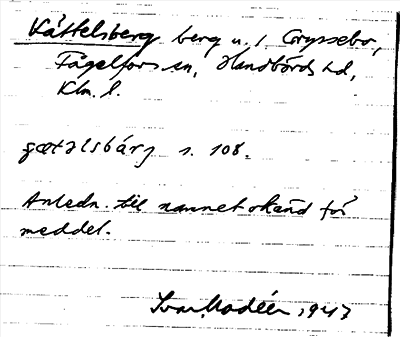 Kättelsberg berg u. / Gryssebo,
Fågelfors sn, Handbörds hd,
Klm. l.
s. 108.
Anledn. till namnet okänd för
meddel.
Ivar Modéer, 1947